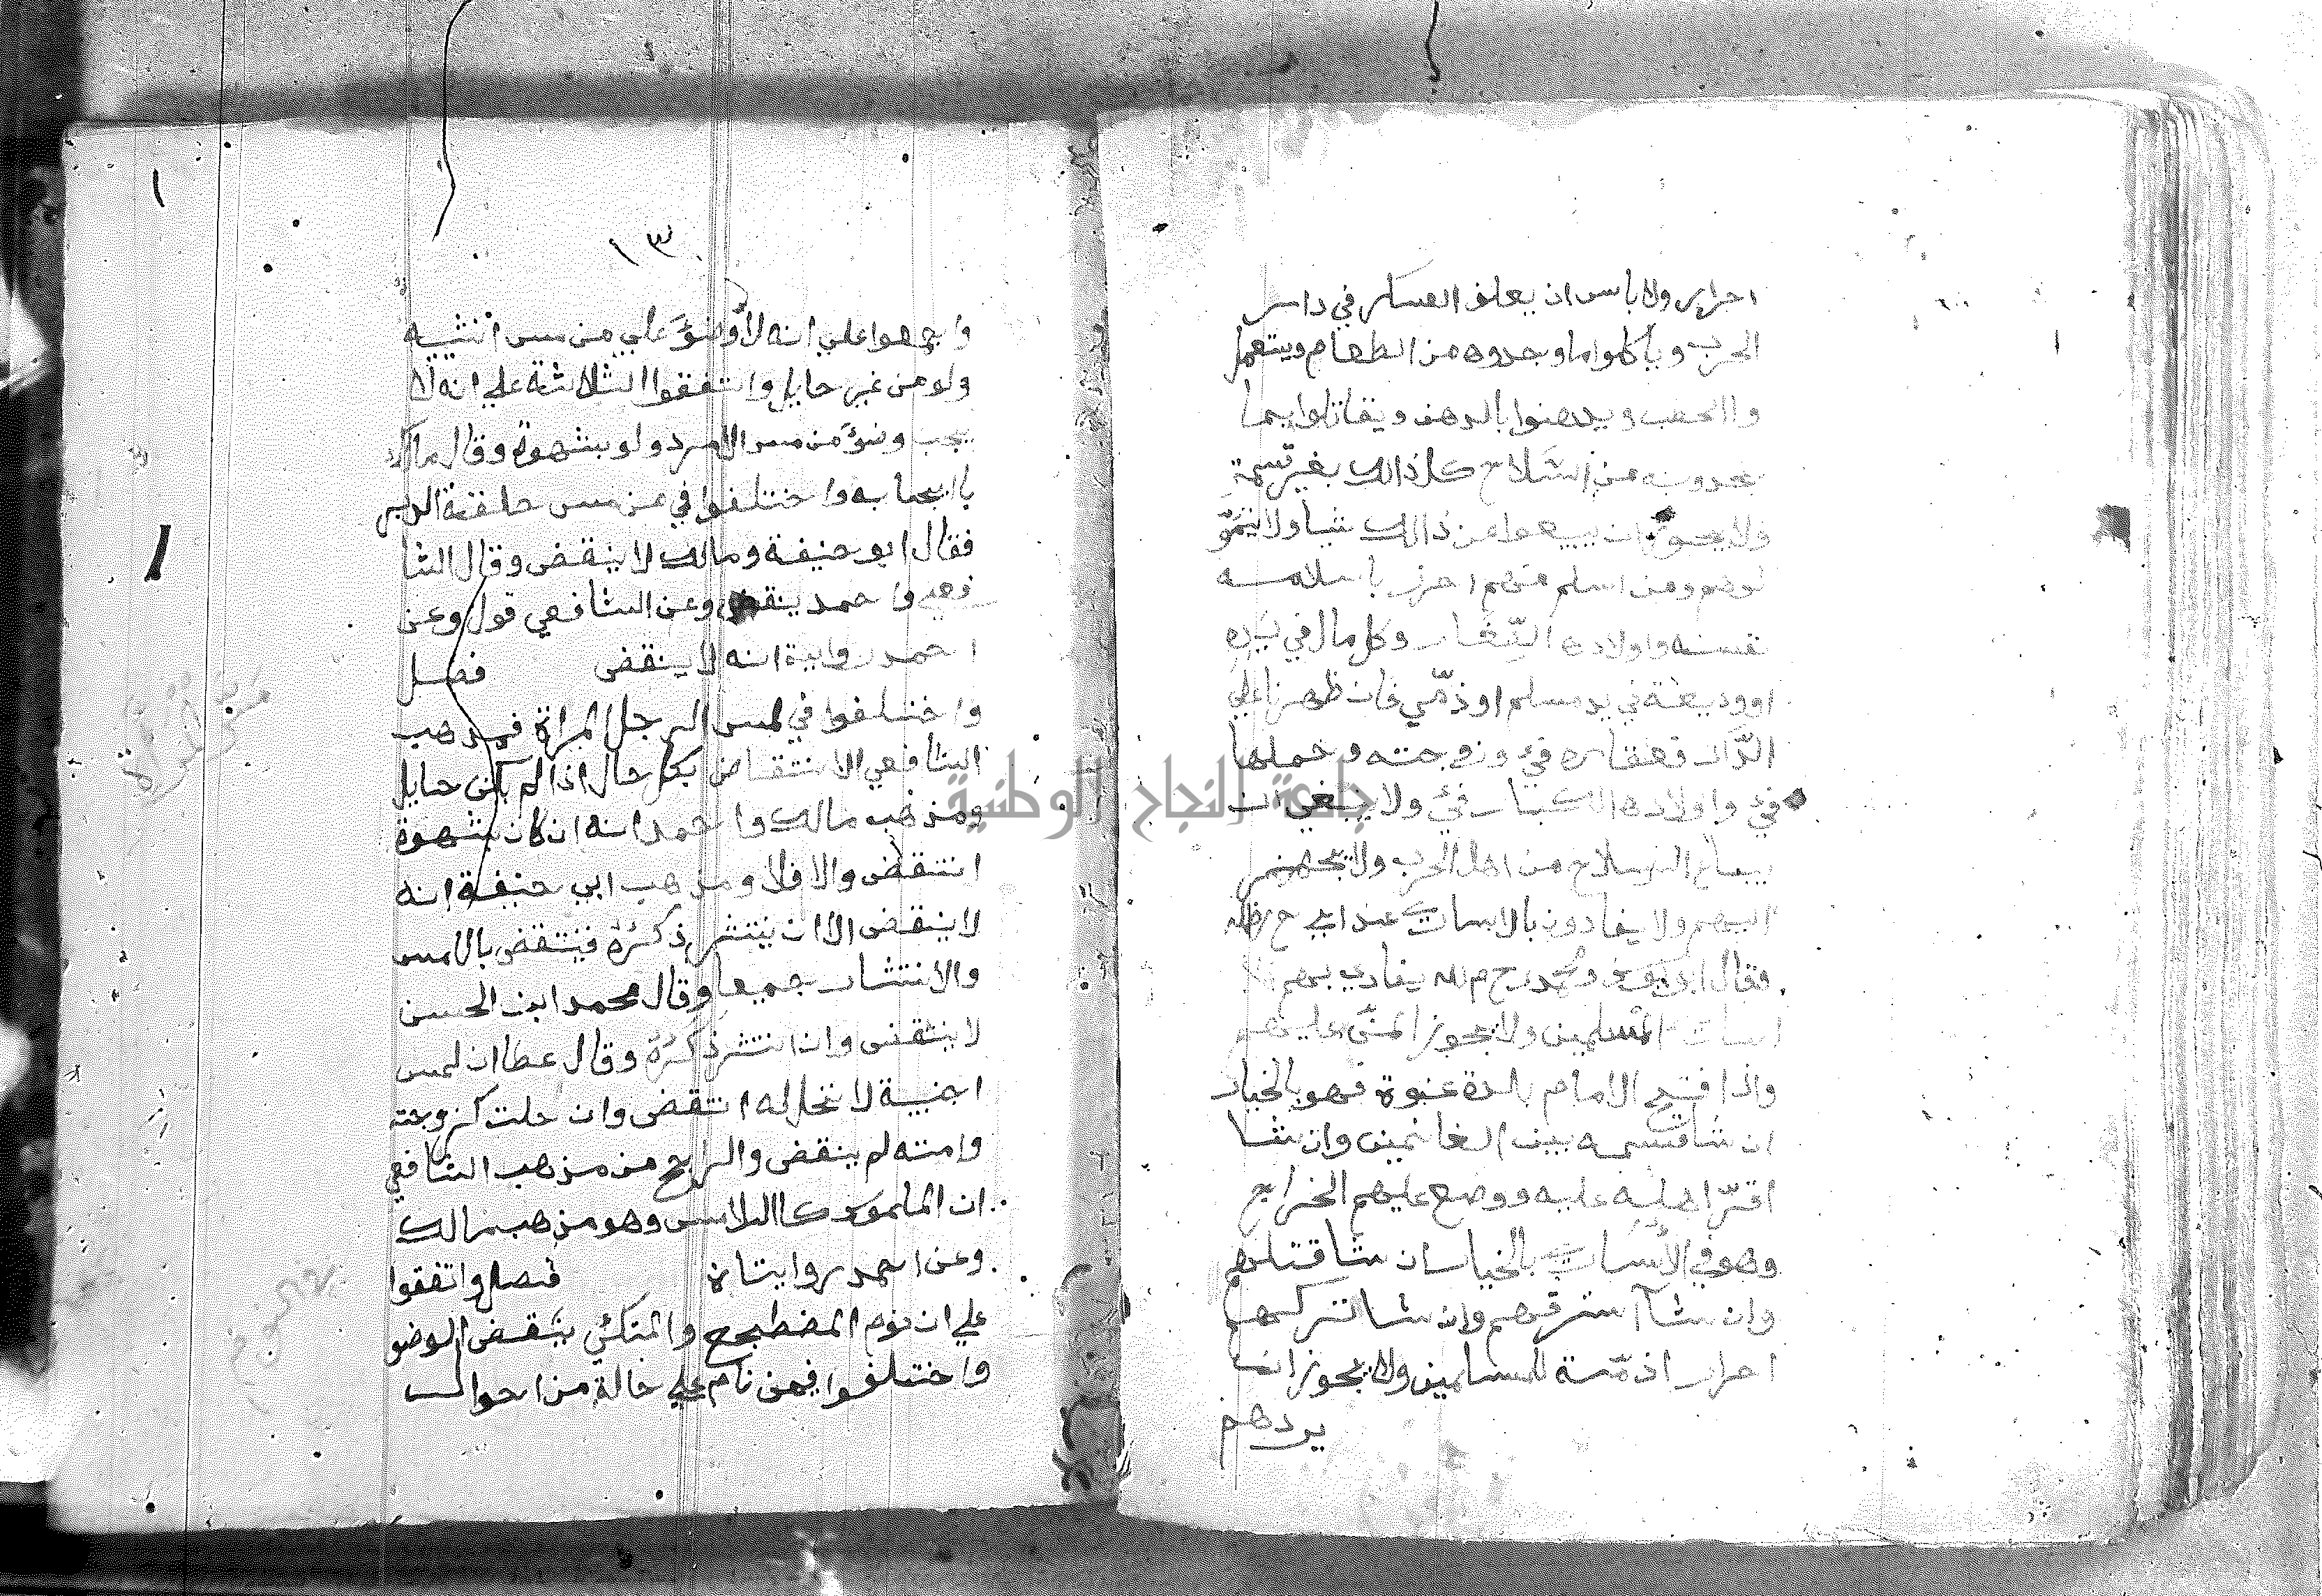 احرارٍ ولا باس ان يعلف العسكر في دار
الحرب وياكلوا ما وجدوه من الطعام ويستعمل
واالحطب ويدهنوا بالدهن ويقاتلوا بما
يجدونه من السّلاح كل ذالك بغير قسمة
ولا يجوز ان يبيعوا من ذالك شيا ولا يتموّ
لونه ومن اسلم منهم احرز باسلامه
نفسه واولاده الصّغار وكل مال في يده
او وديعة في يد مسلم او ذمّي فان ظهرنا علي
الدّار فعقاره فئ وزوجته وحملها
فئ واولاده الكبار فئ ولا ينبغي ان
يباع السلاح من اهل الحرب ولا يجهز
اليهم ولا يفادون بالاسارى عند ابي ح رظه
فقال ابو يوسف ومحمد رحم الله يفادي بهم
اسارى المسلمين ولا يجوز المنّ عليهم
واذا فتح الامام بلدة عنوة فهو بالخيار
ان شا قسمه بين الغانمين وان شا
اقرّ اهله عليه ووضع عليهم الخراج
وهو في الاسارى بالخيار ان شا قتلهم
وان شا استرقهم وان شا تركهم
احرار اذمّة للمسلمين ولا يجوز ان
يردهم
١٣
واجمعوا علي انه لا وضوَ علي من مس انثييه
ولو من غير حايل واتفقوا الثلاثة علي انه لا
يجب وضوَ من مس الامرد ولو بشهوة وقال مالك
باايجابه واختلفوا في من مس حلقة الدبر
فقال ابو حنيفة ومالك لا ينقض وقال الشا
فعي واحمد ينقض وعن الشافعي قول وعن
احمد رواية انه لا ينقض فصل
واختلفوا في لمس الرجل المراة فمذهب
الشافعي الانتقاض بكل حال اذا لم يكن حايل
ومذهب مالك واحمد انه ان كان بشهوة
انتقض والا فلا ومذهب ابي حنيفة انه
لا ينقض الا ان ينتشر ذكرُهُ فينتقض باللمس
والانتشار جميعا وقال محمد ابن الحسن
لا ينتقض وان انتشر ذكرُهُ وقال عطا ان لمس
اجنبية لا تحل له انتقض وان حلت كزوجته
وامته لم ينقض والراجح من مذهب الشافعي
ان الملموس كااللامس وهو مذهب مالك
وعن احمد روايتان فصل واتفقوا
علي ان نوم المضطجع والمتكئ ينقض الوضو
واختلفوا فيمن نام علي حالة من احوال